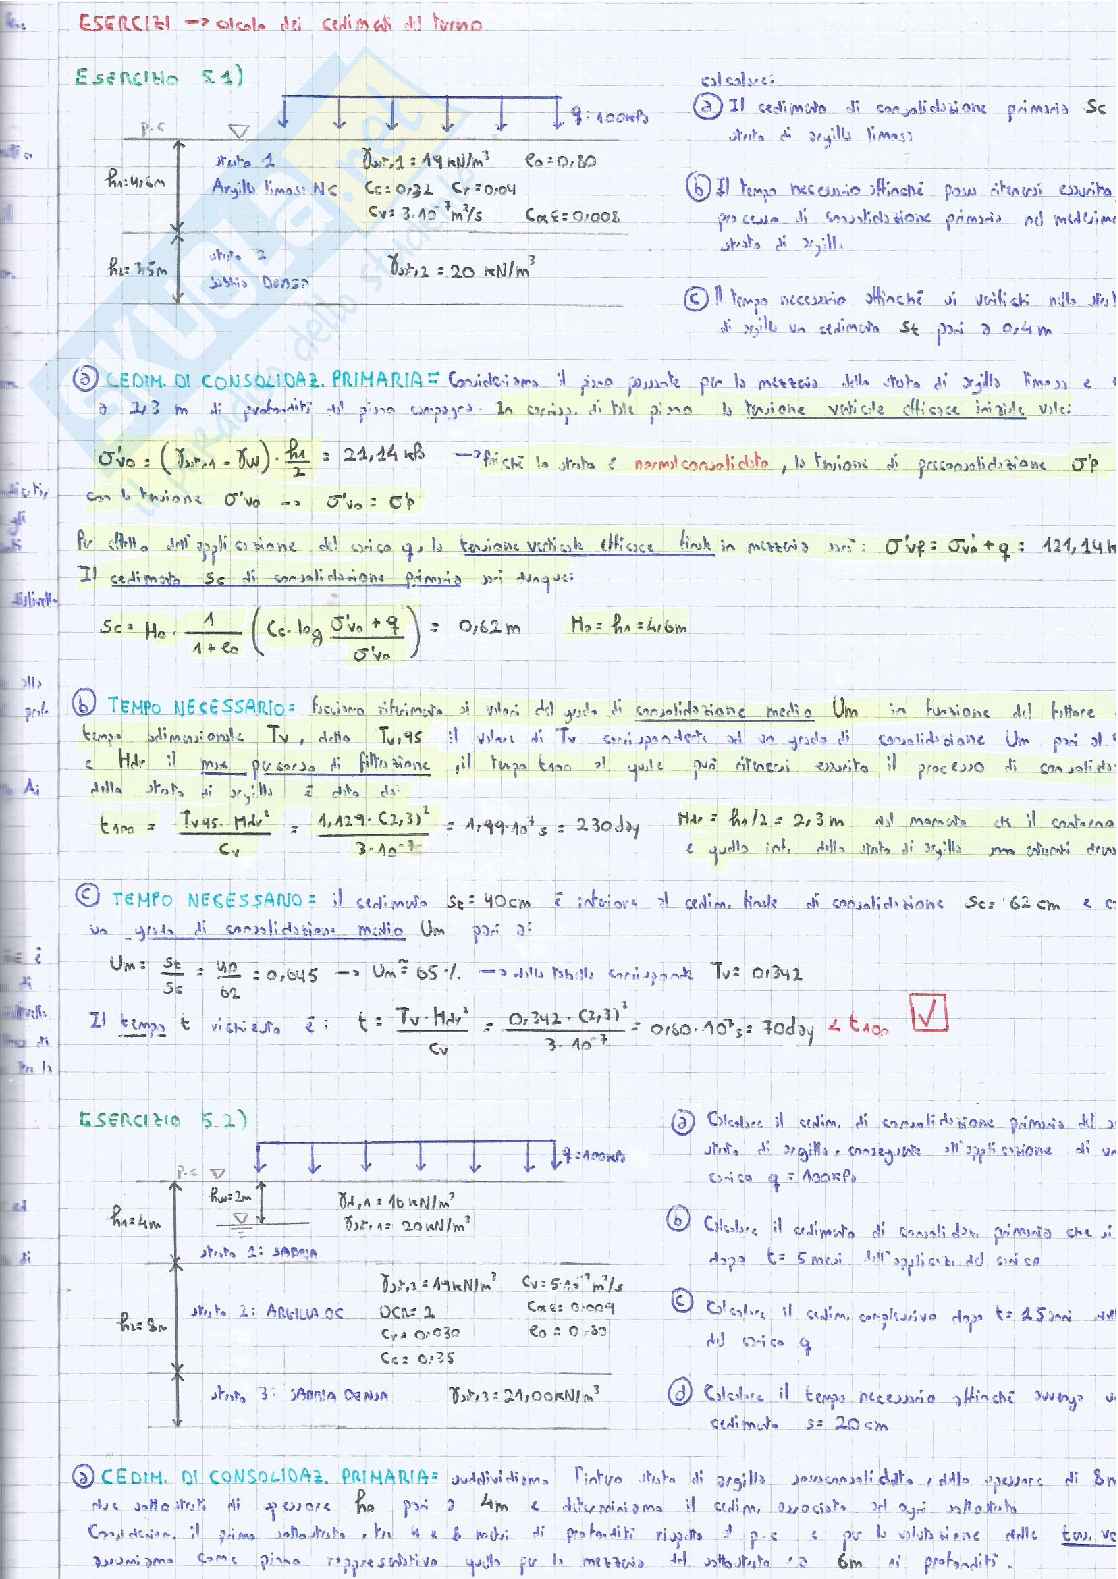 ESERCIZI → calcolo dei cedimenti del terreno
ESERCIZIO 5.1)
q=100kPa
p.c
h1=4,6m
strato 1
Argilla limosa NC
γsat,1 = 19 kN/m³ e0=0,80
Cc=0,32 Cr=0,04
Cv= 3·10⁻⁷ m²/s Cαε=0,008
strato 2
sabbia DENSA
γsat,2 = 20 kN/m³
calcolare:
ⓐ Il cedimento di consolidazione primaria Sc
strato di argilla limosa
ⓑ Il tempo necessario affinché possa ritenersi esaurito
processo di consolidazione primaria nel medesimo
strato di argilla
ⓒ Il tempo necessario affinché si verifichi nello
di argilla un cedimento St pari a 0,4m
ⓐ CEDIM. DI CONSOLIDAZ. PRIMARIA = Consideriamo il piano passante per la mezzeria dello strato di argilla limosa e
a 2,3 m di profondità dal piano campagna. In corrisp. di tale piano la tensione verticale efficace iniziale vale:
σ'vo = (γsat,1 - γw) · h1/2 = 21,14 kPa → poiché lo strato è normalconsolidato, la tensione di preconsolidazione σ'p
con la tensione σ'vo → σ'vo = σ'p
Per effetto dell'applicazione del carico q, la tensione verticale efficace finale in mezzeria sarà: σ'vf = σ'vo + q = 121,14
Il cedimento Sc di consolidazione primaria sarà dunque:
Sc = H0 · 1/(1+e0) (Cc·log (σ'vo + q)/σ'vo) = 0,62 m H0 = h1 = 4,6m
ⓑ TEMPO NECESSARIO = facciamo riferimento ai valori del grado di consolidazione medio Um in funzione del fattore
tempo adimensionale Tv, detto Tv,95 il valore di Tv corrispondente ad un grado di consolidazione Um pari al
e Hdr il max percorso di filtrazione, il tempo t100 al quale può ritenersi esaurito il processo di
dello strato di argilla è dato da:
t100 = Tv95 · Hdr²/Cv = 1,129·(2,3)²/3·10⁻⁷ = 1,99·10⁷s = 230day Hdr = h1/2 = 2,3m dal momento che il contorno
e quello inf. dello strato di argilla sono entrambi
ⓒ TEMPO NECESSARIO = il cedimento St = 40cm è inferiore al cedim. finale di consolidazione Sc= 62cm e
un grado di consolidazione medio Um pari a:
Um = St/Sc = 40/62 = 0,645 → Um ≅ 65% → dalla tabella corrisponde Tv = 0,342
Il tempo t richiesto è: t = Tv · Hdr²/Cv = 0,342 · (2,3)²/3·10⁻⁷ = 0,60·10⁷s = 70day < t100 ✓
ESERCIZIO 5.2)
q=100kPa
p.c
hw=2m
h1=4m
γd,1 = 16 kN/m³
γsat,1 = 20kN/m³
strato 1: SABBIA
h2=8m
strato 2: ARGILLA OC
γsat,2 = 19kN/m³ Cv=5·10⁻⁷ m²/s
OCR=2 Cαε=0.009
Cr=0.030 e0=0.80
Cc=0.35
strato 3: SABBIA DENSA γsat,3=21,00kN/m³
ⓐ Calcolare il cedim. di consolidazione primaria del
strato di argilla, conseguente all'applicazione di un
carico q = 100kPa
ⓑ Calcolare il cedimento di consolidaz. primaria che si
dopo t= 5 mesi dall'applicaz. del carico
ⓒ Calcolare il cedim. complessivo dopo t=25anni
del carico q
ⓓ Calcolare il tempo necessario affinché avvenga
cedimento s=20cm
ⓐ CEDIM. DI CONSOLIDAZ. PRIMARIA = suddividiamo l'intero strato di argilla sovraconsolidato, dallo spessore di 8m
due sottostrati di spessore h0 pari a 4m e determiniamo il cedim. associato ad ogni sottostrato
il primo sottostrato, tra 4 e 8 metri di profondità rispetto al p.c e per la valutazione delle tens.
assumiamo come piano rappresentativo quello per la mezzeria del sottostrato a 6m di profondità.